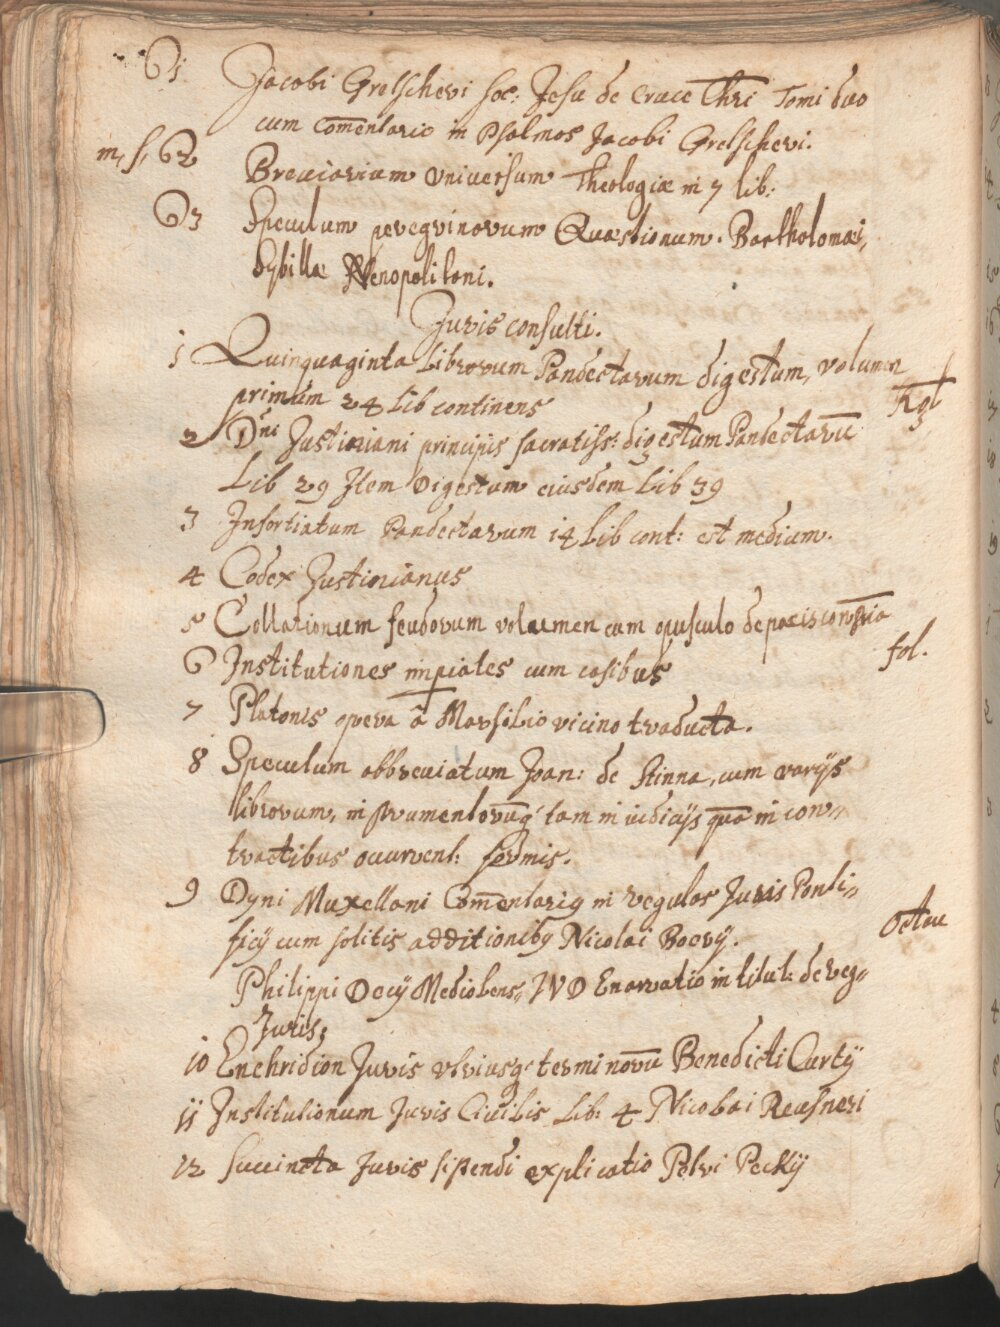 61 Jacobi Gretschevi Soc: Jesu de cruce Chri Tomi duo
cum comentario in Psalmos Jacobi Gretschevi.
m, s, 62 Breviarium universum Theologiæ in 7 lib:
63 Speculum peregrinorum Quæstionum. Bartholomæi,
Sybillæ
Juris consulti.
1 Quinquaginta Librorum Pandectarum digestum, volumen
primum 24 Lib continens
2 Dni Justiniani principis sacratiss: digestum Pandectaru
Lib 29 Item Digestum eiusdem Lib 39
3 Infortiatum Pandectarum 14 Lib cont: est medium.
4 Codex Justinianus
5 Collationum feudorum volumen cum opusculo de pacis
fol.
6 Institutiones impiales cum casibus
7 Platonis opera a Marsilio vicino traducta.
8 Speculum abbreviatum Joan: de Stinna, cum varijs
librorum, instrumentorumq tam in iudicijs qua in con„
tractibus occurrent: formis.
9 Dyni Muxellani Comentarig in regulas Juris Ponti„
ficij cum solitis additionibg Nicolai Boerij.
Octau
Philippi Decij Mediolens„ IVD Enarratio in titul: de reg„
Juris,
10 Enchridion Juris utriusq terminoru Benedicti Curtij
11 Institutionum Juris Civilis Lib: 4 Nicolai Reusneri
12 Succincta Juris sistendi explicatio Petri Peckij